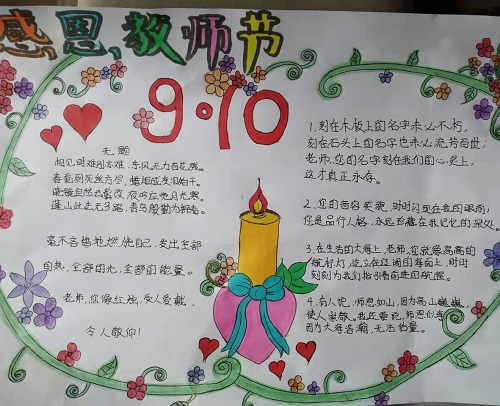 感恩教师节
9·10
无题
相见时难别亦难,东风无力百花残。
春蚕到死丝方尽,蜡炬成灰泪始干。
晓镜但愁云鬓改,夜吟应觉月光寒。
蓬山此去无多路,青鸟殷勤为探看。
毫不吝惜地燃烧自己,发出全部
的热,全部的光,全部的能量。
老师,您像红烛,受人爱戴,
令人敬仰!
1.刻在木板上的名字未必不朽,
刻在石头上的名字也未必流芳百世;
老师,您的名字刻在我们的心灵上,
这才真正永存。
2.您的音容笑貌,时时闪现在我的眼前;
您是品行人格,永远珍藏在我记忆的深处。
3.在生活的大海上,老师,您就像高高的
航标灯,屹立在辽阔的海面上,时时
刻刻为我们指引着前进的航程。
4.有人说,师恩如山,因为高山巍巍,
使人崇敬。我还要说,师恩似海,
因为大海浩瀚,无法估量。